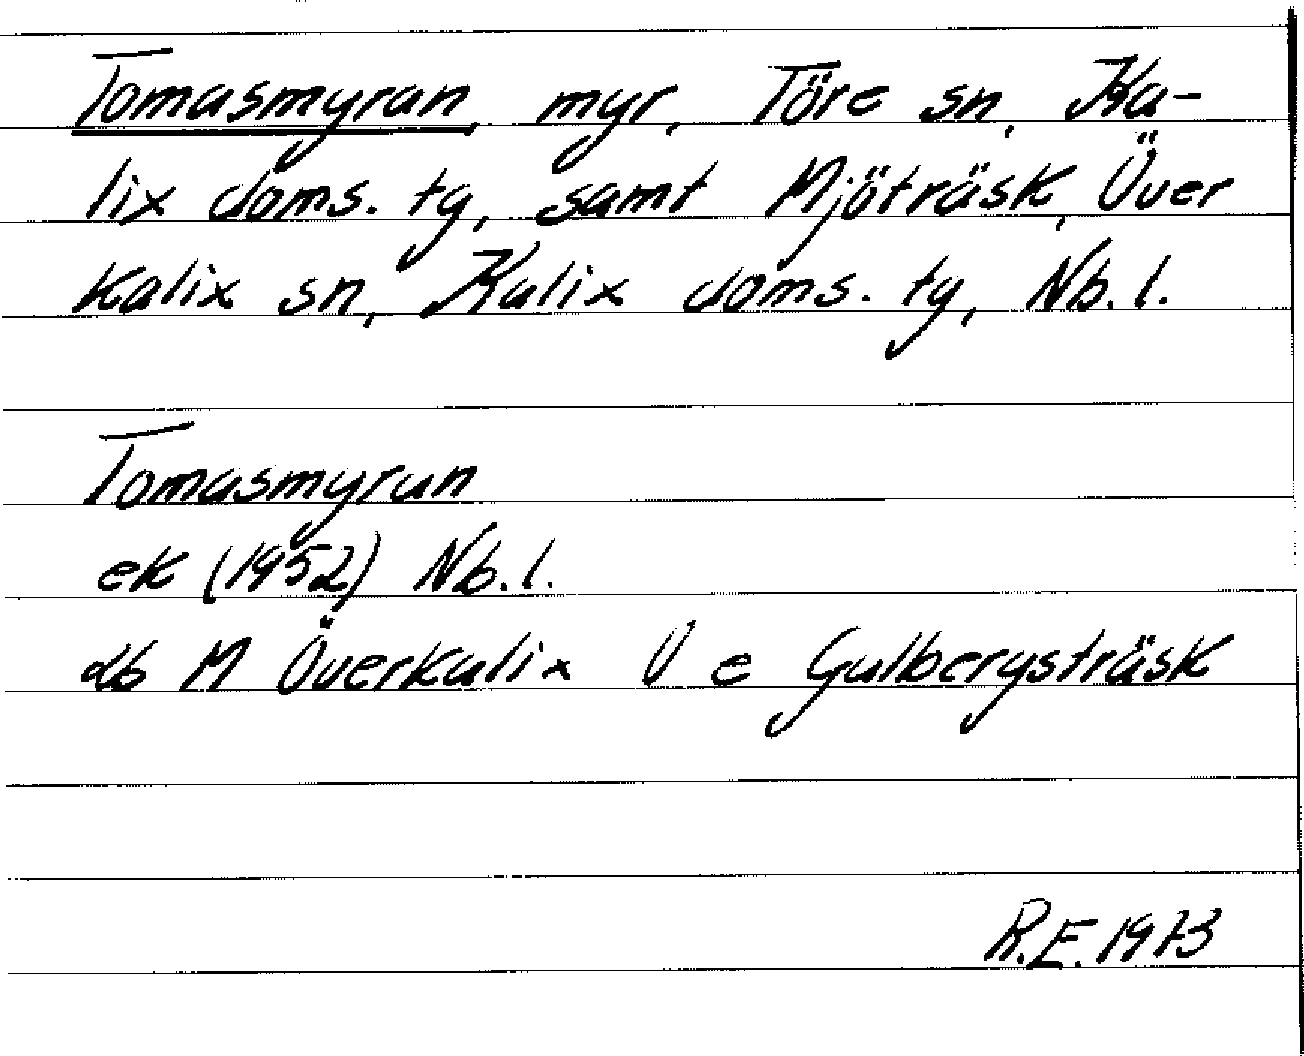 Tomasmyran, myr, Töre sn, Ka-
lix doms. tg, samt Mjöträsk, Över
Kalix sn, Kalix doms. tg, Nb. l.
Tomasmyran
ek (1952) Nb. l.
db M Överkalix V e Gulbergsträsk
R.E. 1973